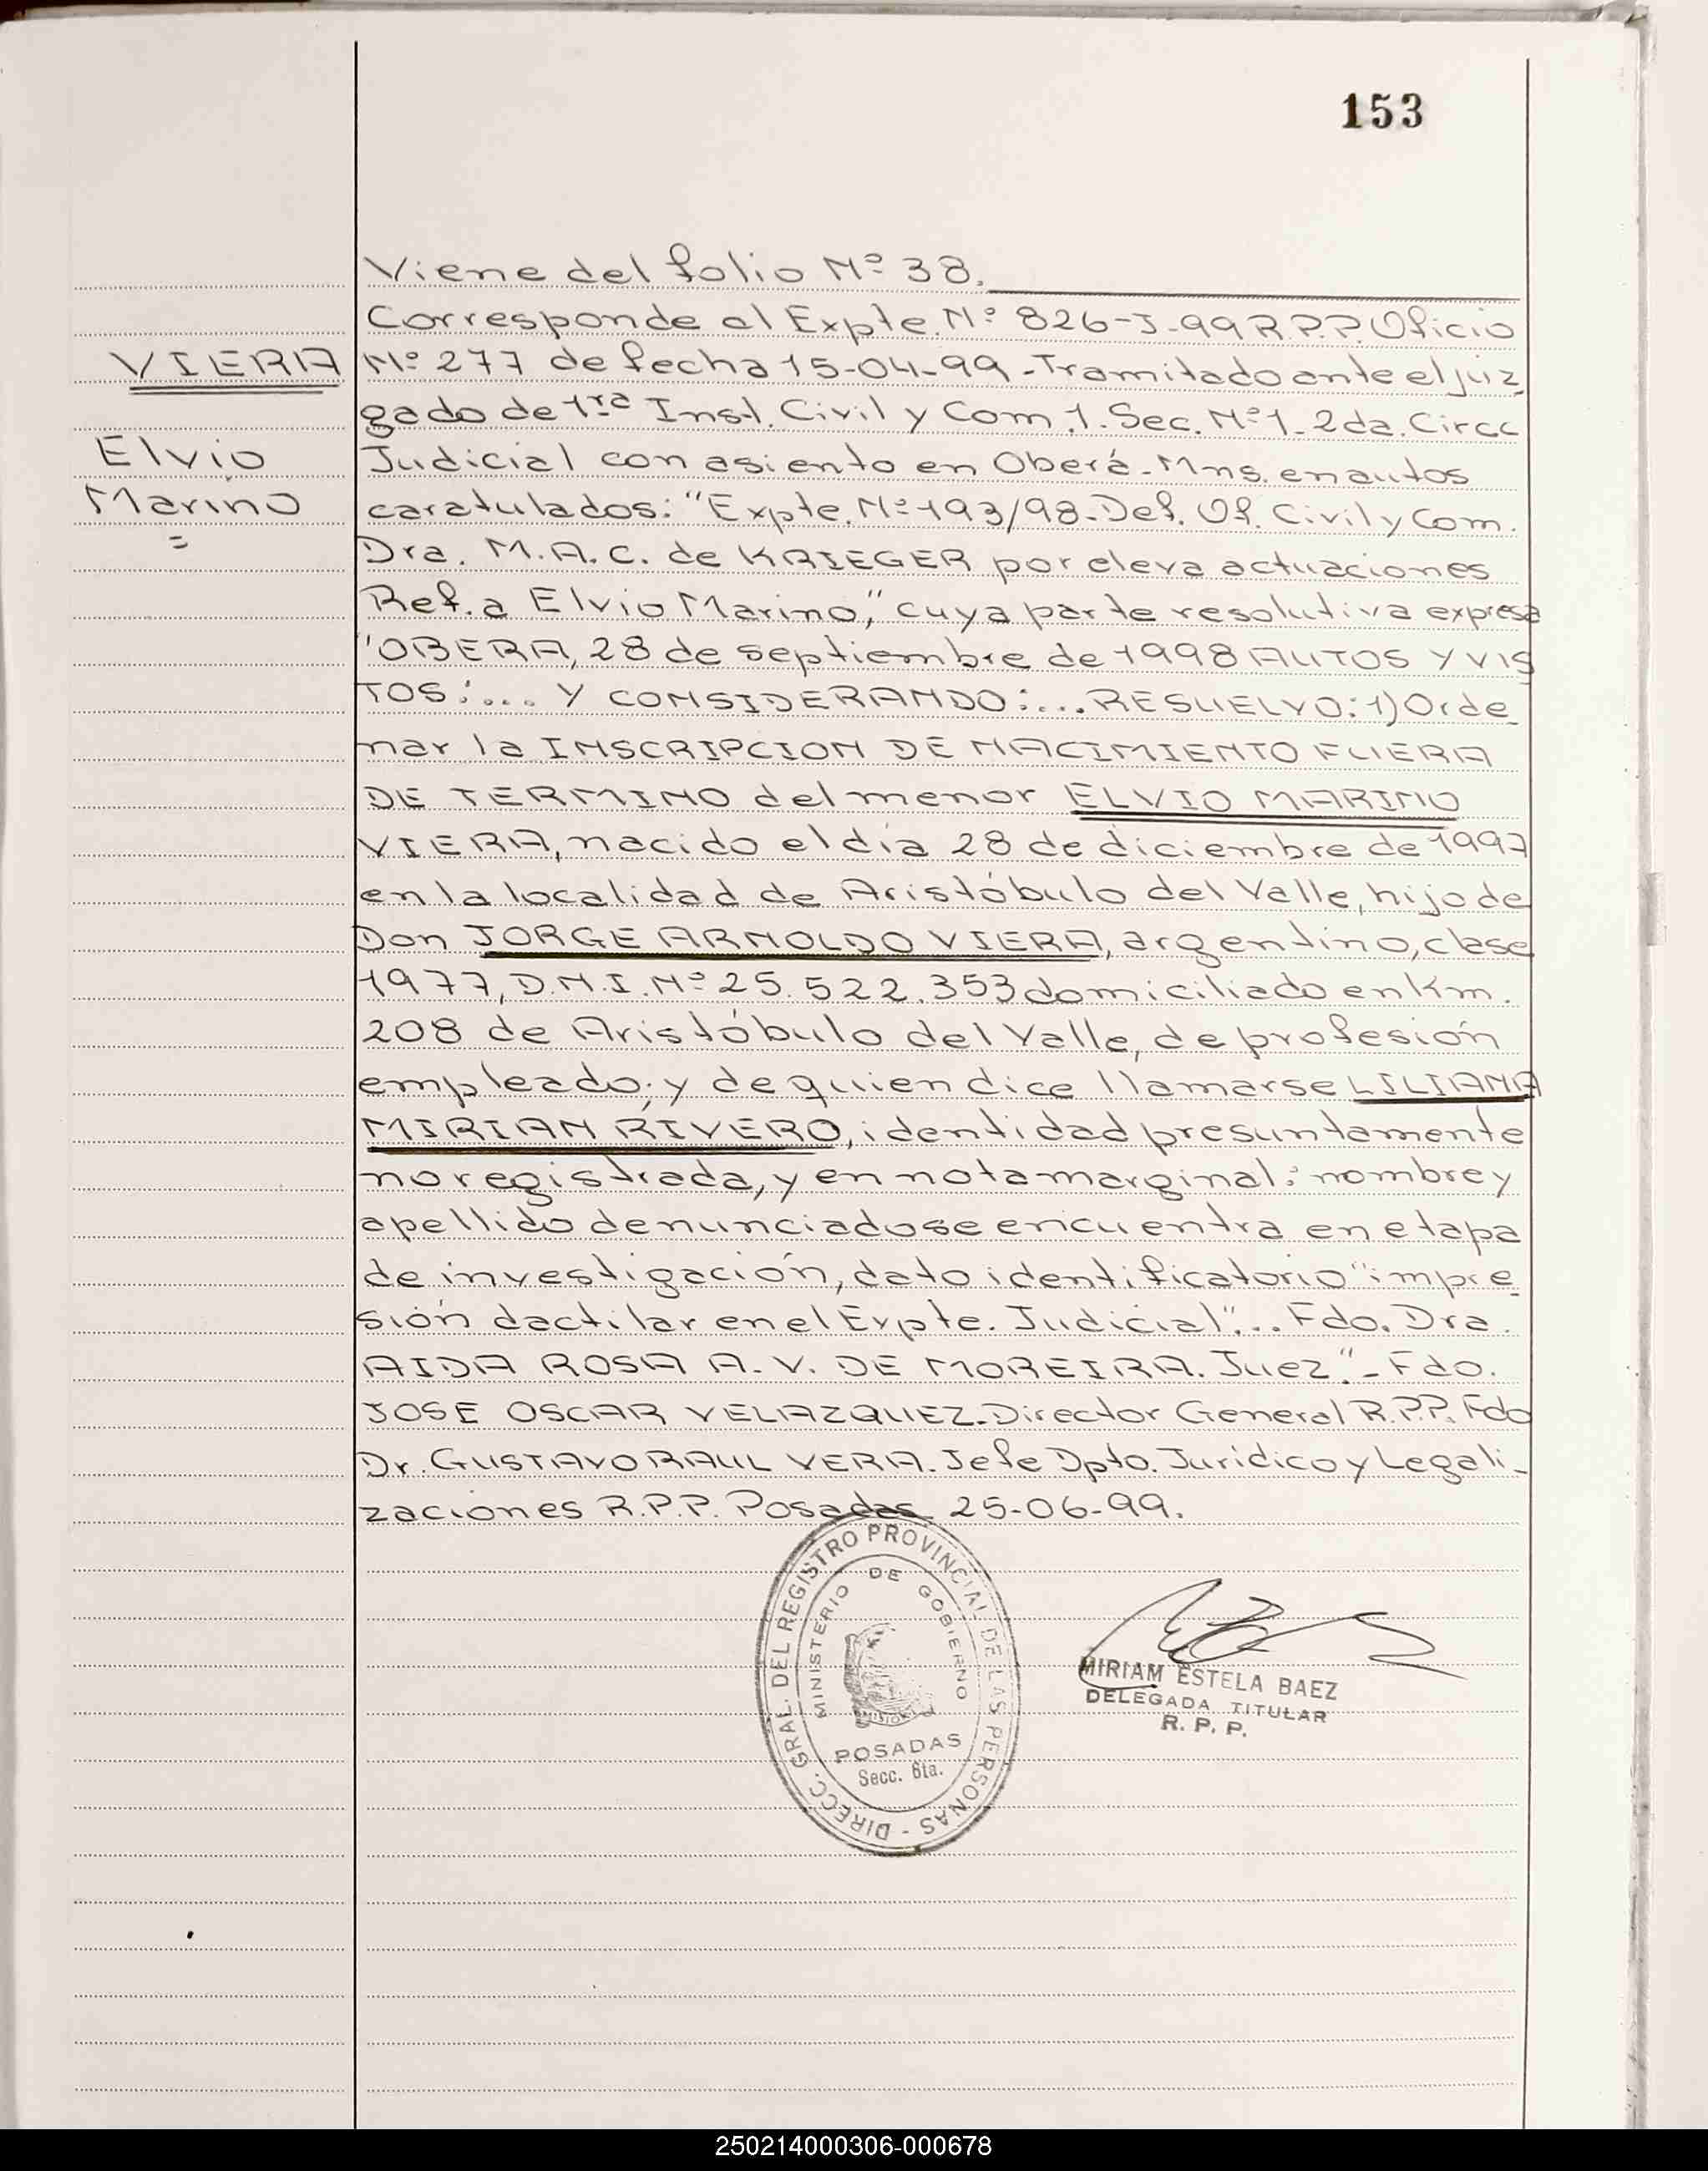 153
Viene del folio Nº 38.
Corresponde al Expte. Nº 826-J-99 R.P.P. Oficio
VIERA
Nº 277 de fecha 15-04-99.-Tramitado ante el juz
gado de 1ra Inst. Civil y Com. 1. Sec. Nº 1. 2da. Circc
Elvio
Judicial con asiento en Oberá-Mns. en autos
Marino
=
caratulados: "Expte. Nº 193/98-Def. Of. Civil y Com.
Dra. M.A.C. de KRIEGER por eleva actuaciones
Ref. a Elvio Marino," cuya parte resolutiva expresa
"OBERA, 28 de septiembre de 1998 AUTOS Y VIS
TOS:... Y CONSIDERANDO:... RESUELVO: 1) Orde
nar la INSCRIPCION DE NACIMIENTO FUERA
DE TERMINO del menor ELVIO MARINO
VIERA, nacido el día 28 de diciembre de 1997
en la localidad de Aristóbulo del Valle, hijo de
Don JORGE ARNOLDO VIERA, argentino, clase
1977, D.N.I. Nº 25.522.353 domiciliado en Km.
208 de Aristóbulo del Valle, de profesión
empleado; y de quien dice llamarse LILIANA
MIRIAN RIVERO, identidad presuntamente
no registrada, y en nota marginal: nombre y
apellido denunciado se encuentra en etapa
de investigación, dato identificatorio "impre
sión dactilar en el Expte. Judicial"... Fdo. Dra.
AIDA ROSA A. V. DE MOREIRA. Juez".- Fdo.
JOSE OSCAR VELAZQUEZ-Director General R.P.P. Fdo
Dr. GUSTAVO RAUL VERA. Jefe Dpto. Jurídico y Legali-
zaciones R.P.P. Posadas 25-06-99.
DIRECC. GRAL. DEL REGISTRO PROVINCIAL DE LAS PERSONAS -
MINISTERIO DE GOBIERNO
POSADAS
Secc. 6ta.
MIRIAM ESTELA BAEZ
DELEGADA TITULAR
R. P. P.
250214000306-000678